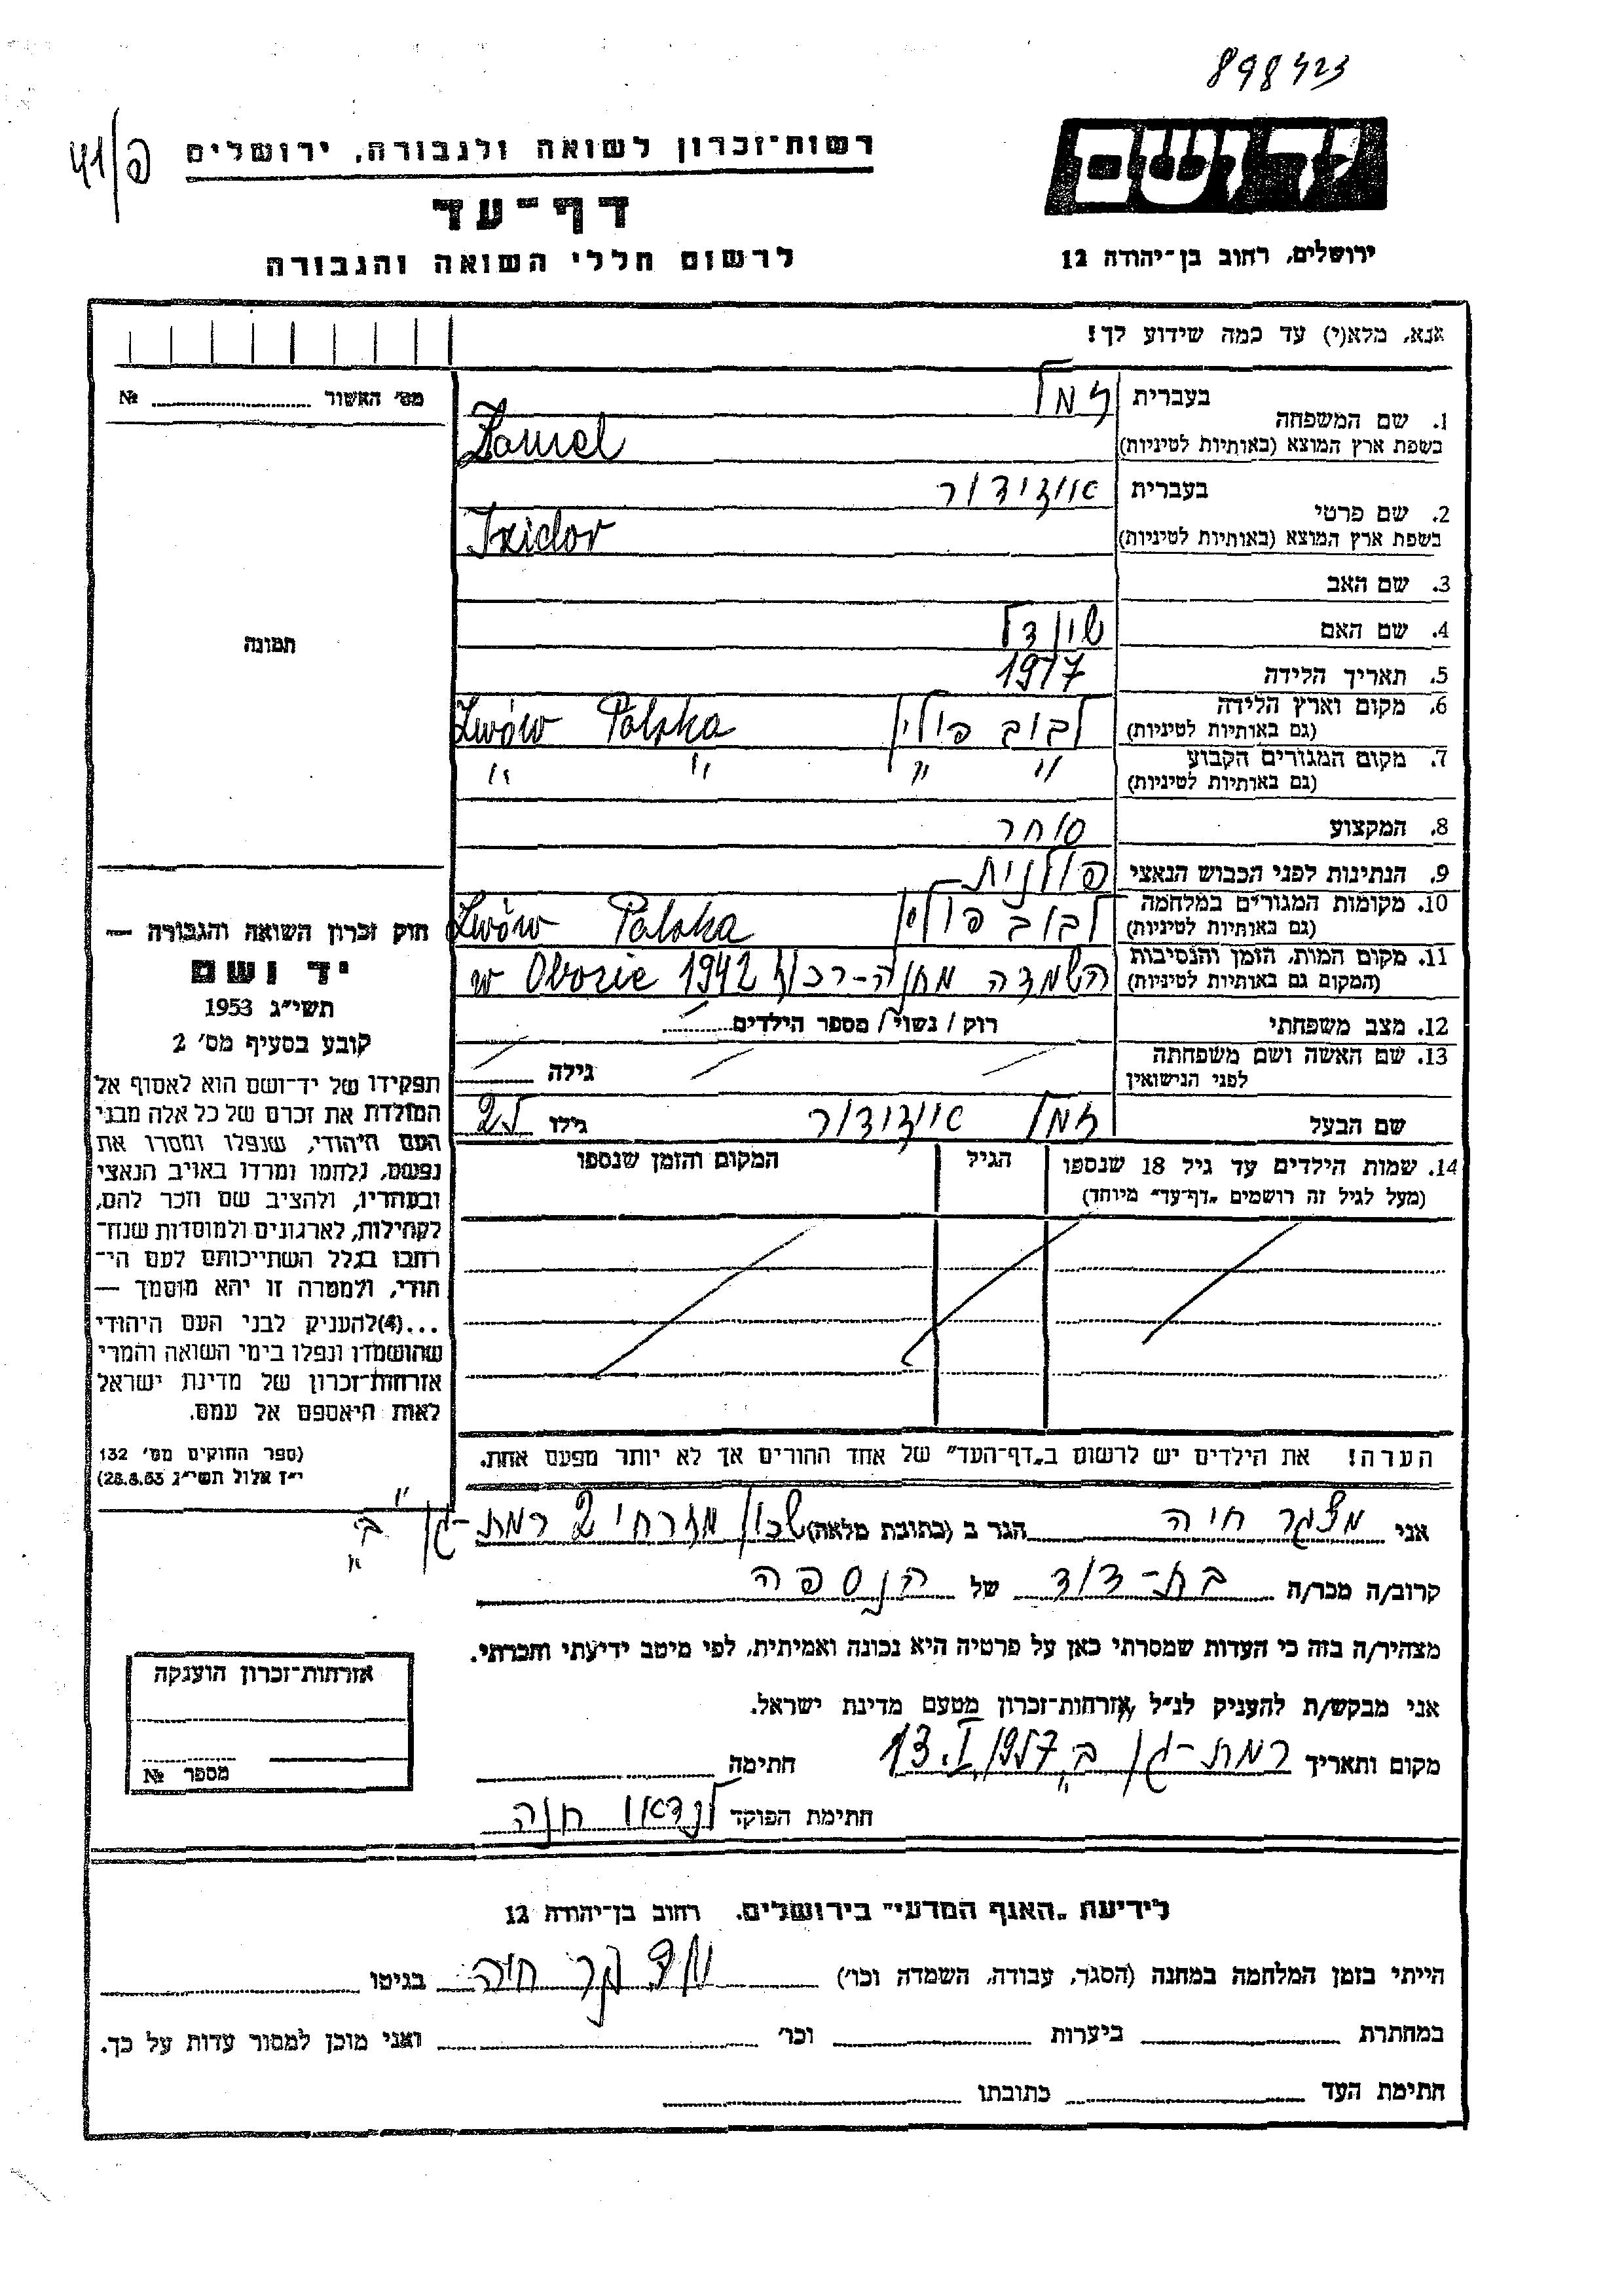 898423
פ/41
רשות־זכרון לשואה ולגבורה, ירושלים
דף־עד
לרשום חללי השואה והגבורה
יד ושם
ירושלים, רחוב בן־יהודה 12
אנא, מלא(י) עד כמה שידוע לך!
מס' האשור № 
1. שם המשפחה
בעברית זמל
בשפת ארץ המוצא (באותיות לטיניות) Zamel
2. שם פרטי
בעברית איזידור
בשפת ארץ המוצא (באותיות לטיניות) Izidor
3. שם האב
4. שם האם שינדל
5. תאריך הלידה 1917
6. מקום וארץ הלידה (גם באותיות לטיניות) לבוב פולין Lwów Polska
7. מקום המגורים הקבוע (גם באותיות לטיניות) " " " "
8. המקצוע סוחר
9. הנתינות לפני הכבוש הנאצי פולנית
10. מקומות המגורים במלחמה (גם באותיות לטיניות) לבוב פולין Lwów Polska
11. מקום המות, הזמן והנסיבות (המקום גם באותיות לטיניות) השמדה מחנה-רכוז 1942 w Obozie
12. מצב משפחתי רוק / נשוי / מספר הילדים
13. שם האשה ושם משפחתה לפני הנישואין גילה
שם הבעל זמל איזידור גילו 25
14. שמות הילדים עד גיל 18 שנספו (מעל לגיל זה רושמים "דף־עד" מיוחד) הגיל המקום והזמן שנספו
תמונה
חוק זכרון השואה והגבורה —
יד ושם
תשי״ג 1953
קובע בסעיף מס' 2
תפקידו של יד־ושם הוא לאסוף אל
המולדת את זכרם של כל אלה מבני
העם היהודי, שנפלו ומסרו את
נפשם, נלחמו ומרדו באויב הנאצי
ובעוזריו, ולהציב שם וזכר להם,
לקהילות, לארגונים ולמוסדות שנח־
רבו בגלל השתייכותם לעם הי־
הודי, ולמטרה זו יהא מוסמך —
...(4)להעניק לבני העם היהודי
שהושמדו ונפלו בימי השואה והמרי
אזרחות־זכרון של מדינת ישראל
לאות היאספם אל עמם.
(ספר החוקים מס' 132
י״ז אלול תשי״ג 28.8.53)
הערה! את הילדים יש לרשום ב"דף־העד" של אחד ההורים אך לא יותר מפעם אחת.
אני מצגר חיה הגר ב (כתובת מלאה) שכון מזרחי 2 רמת-גן ב'
קרוב/ה מכר/ה בת-דוד של הנספה
מצהיר/ה בזה כי העדות שמסרתי כאן על פרטיה היא נכונה ואמיתית, לפי מיטב ידיעתי והכרתי.
אני מבקש/ת להעניק לנ״ל אזרחות־זכרון מטעם מדינת ישראל.
מקום ותאריך רמת-גן ב' 13.I.1957 חתימה
חתימת הפוקד לנדאו חנה
אזרחות־זכרון הוענקה
מספר №
לידיעת "האגף המדעי" בירושלים, רחוב בן־יהודה 12
הייתי בזמן המלחמה במחנה (הסגר, עבודה, השמדה וכו') מצגר חיה בגיטו
במחתרת ביערות וכו' ואני מוכן למסור עדות על כך.
חתימת העד כתובתו